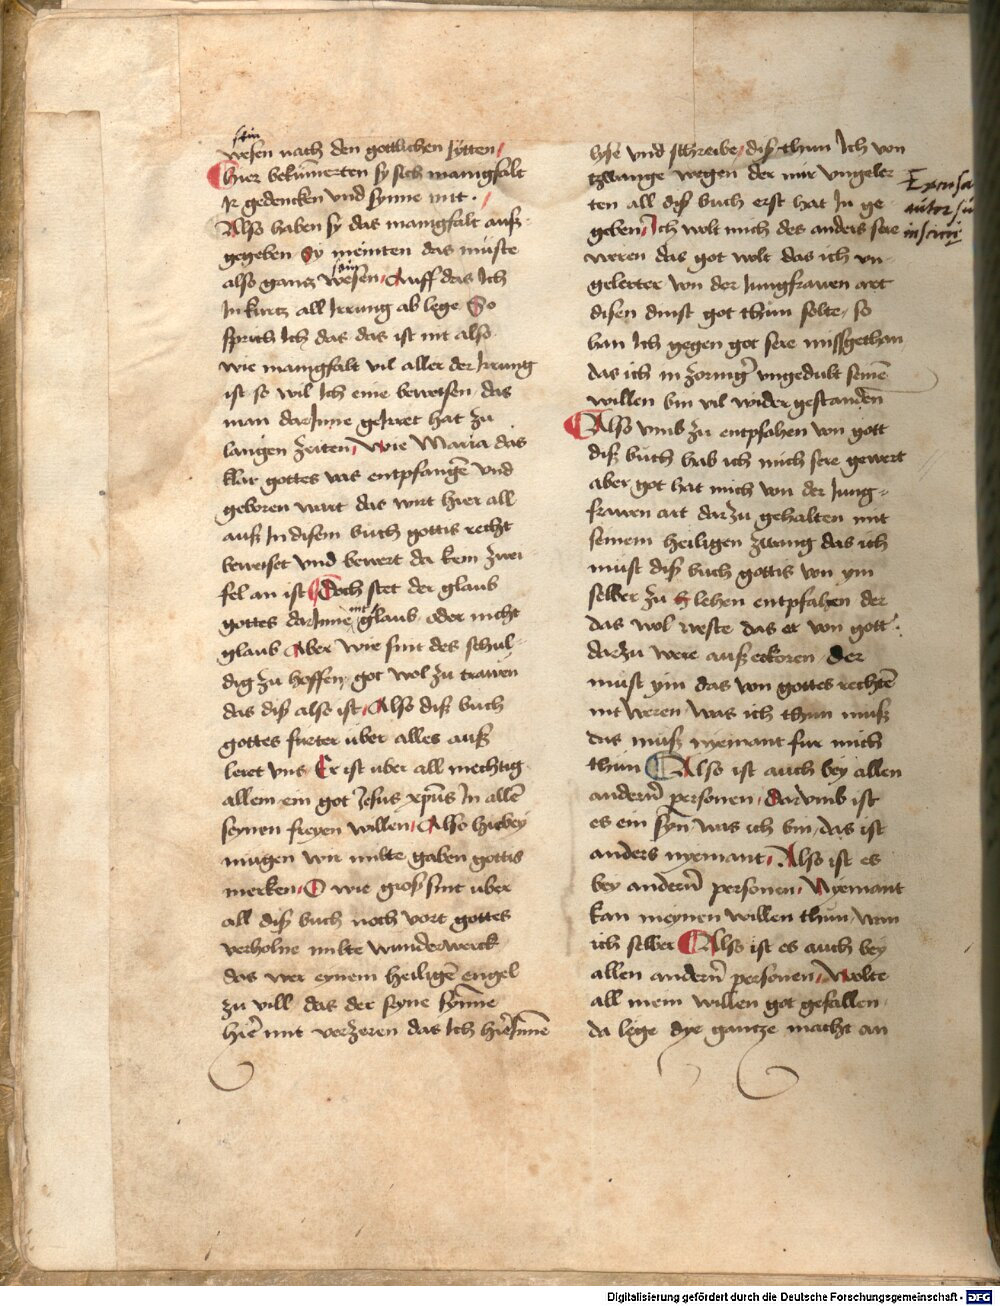 sein
wesen nach den gottlichen sytten
hier bekumerten sy sich manigfalt
Ir gedencken vnd synne mit .
Also haben sy das manigfalt auß
gegeben Sy meinten das muste
sein
also gantz wesen Auff das Ich
In kurtz all Irrung ab lege So
sprich Ich das das ist nit also
wie manigfalt vil aller der Irrung
ist so wil Ich eine beweisen das
man darInne geIrret hat zu
langen zeiten Wie Maria das
klar gottes vas entpfangē vnd
geboren wart das wirt hier all
auß In disem buch gottis recht
beweiset vnd bewert da kein zwei
fel an ist Doch stet der glaub
gottes darInne nit glaub oder nicht
glaub Aber wir sint des schul-
dig zu hoffen got wol zu trawen
das diß also ist Also diß buch
gottes furter uber alles auß
leret vns Er ist uber all mechtig
allein ein got Jesus xp̄us In allē
seynen freyen willen Also hiebey
mugen wir milte gaben gottis
merken O wie groß sint uber
all diß buch noch vort gottes
verholne milte wunderwerck
das wer eynem heiligē engel
zu vill das der syne synne
hiē mit verzeren das Ich hieInnē
lyse vnd schreibe diß thun Ich von
tzwange wegen der mir vngeler
ten all diß buch erst hat In ge
geben Ich wolt mich des anders sere
weren das got wolt das ich vn
gelerter von der Jungfrawen art
disen dinst got thun solte so
han Ich gegen got sere missgethan
das ich in zornigr̄ vngedult seinē
willen bin vil wider gestanden
Also vmb zu entpfahen von gott
diß buch hab ich mich sere gewert
aber got hat mich von der Jung-
frawen art darzu gehalten mit
seinem heiligen zwang das ich
must diß buch gottis von ym
selber zu lehen entpfahen der
das wol weste das er von gott
darzu were außerkoren der
must ym das von gottes rechtē
nit weren was ich thun muß
das muß nyemant fur mich
thun Also ist auch bey allen
andern̄ personen darvmb ist
es ein syn was ich bin das ist
anders nyemant Also ist es
bey andern̄ personen Nyemant
kan meynen willen thun wan
ich selber Also ist es auch bey
allen andern̄ personen Wolte
all mein willen got gefallen
da lege dye gantze macht an
autor
Digitalisierung gefördert durch die Deutsche Forschungsgemeinschaft - DFG